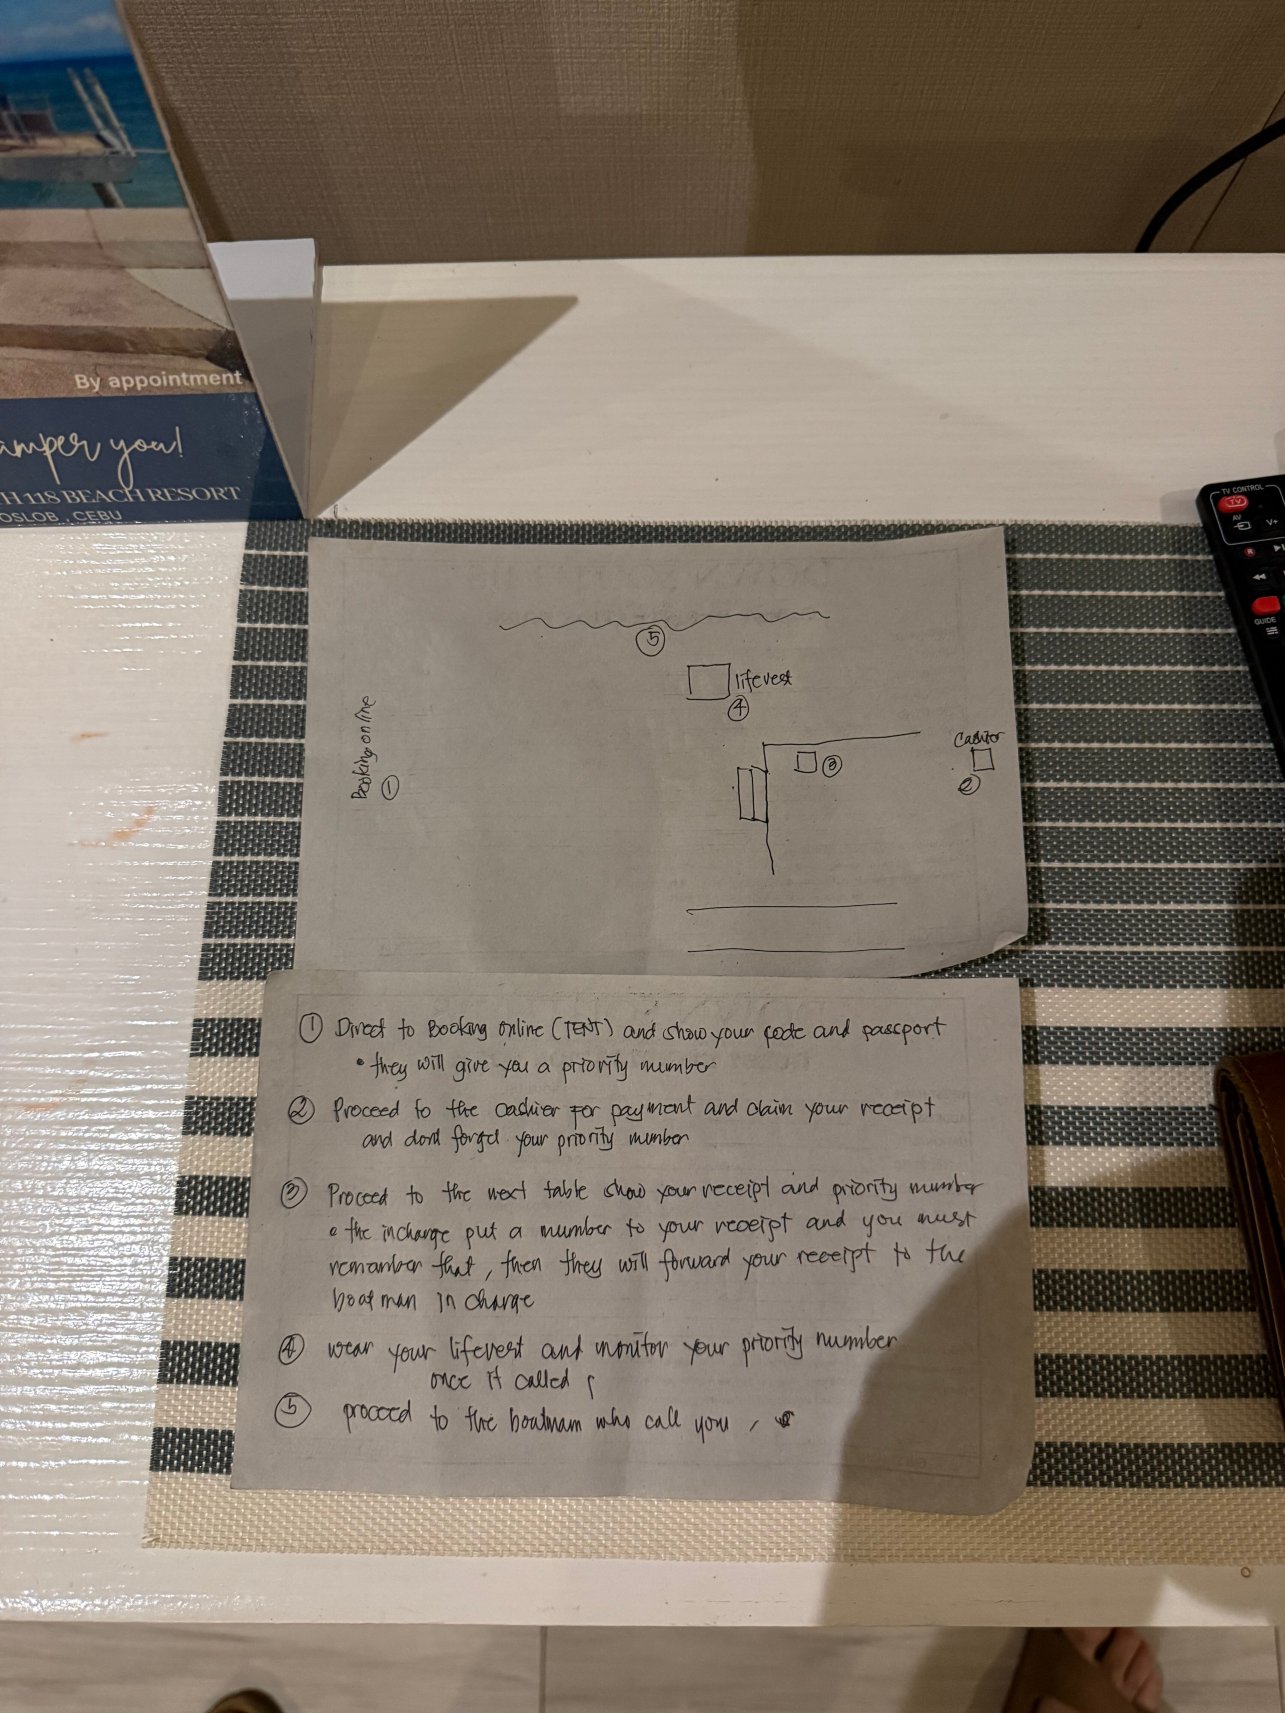 By appointment
amper you!
H 118 BEACH RESORT
OSLOB, CEBU
TV CONTROL
TV
AV
V+
GUIDE
5
lifevest
4
Cashier
3
2
Booking online
1
1 Direct to Booking online (TENT) and show your code and passport
• they will give you a priority number
2 Proceed to the cashier for payment and claim your receipt
and dont forget your priority number
3 Proceed to the next table show your receipt and priority number
• the incharge put a number to your receipt and you must
remember that, then they will forward your receipt to the
boatman in charge
4 wear your lifevest and monitor your priority number
once it called
5 proceed to the boatmam who call you,